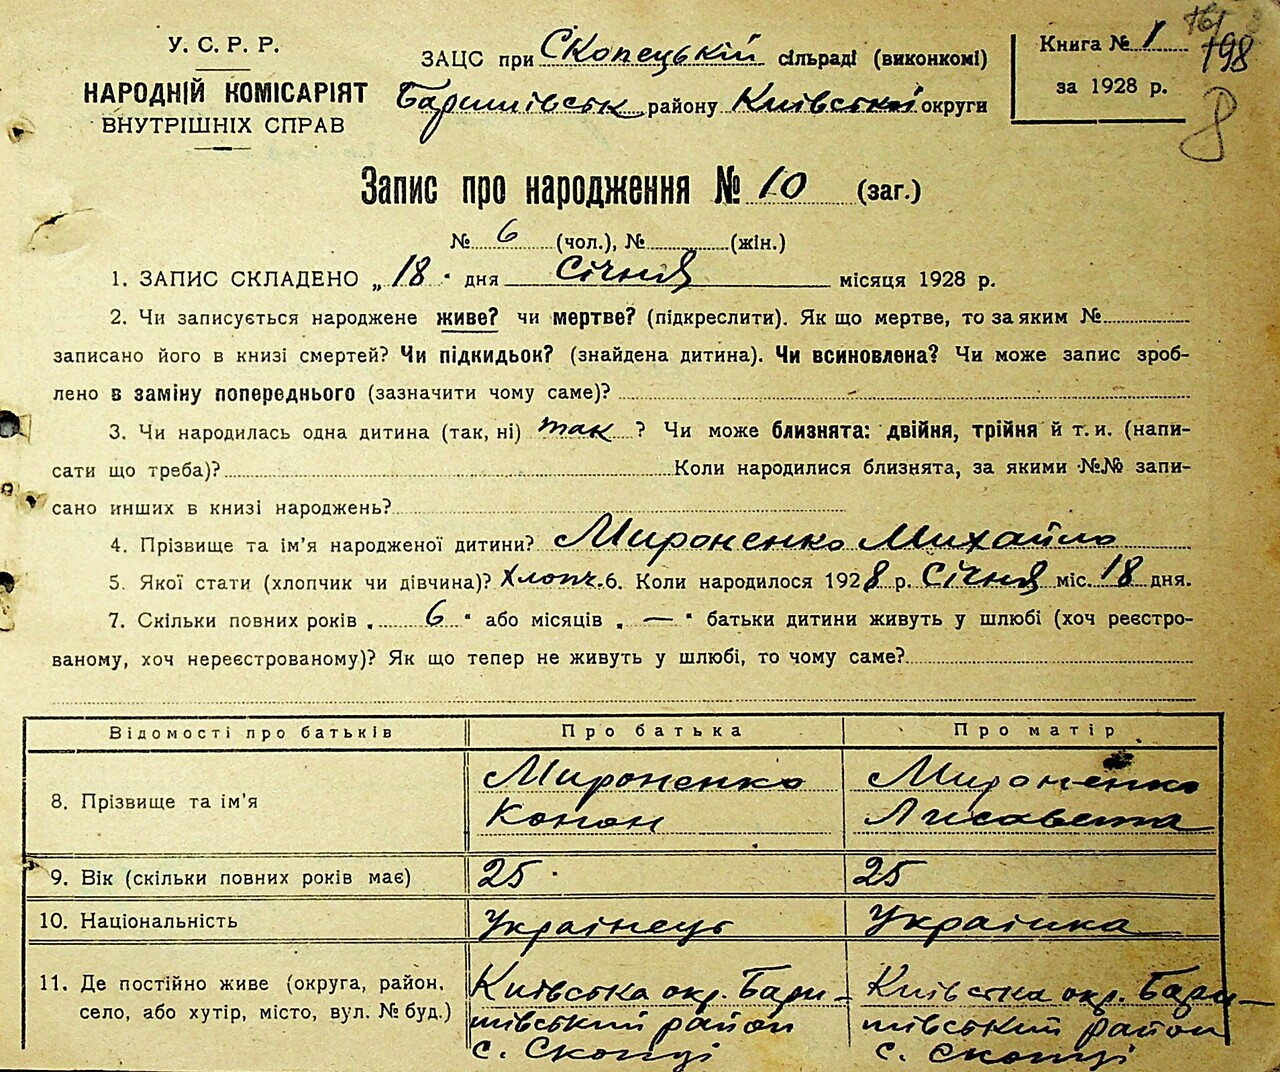 У. С. Р. Р.
НАРОДНІЙ КОМІСАРІЯТ
ВНУТРІШНІХ СПРАВ
ЗАЦС при Скопецькій сільраді (виконкомі)
Баришівськ району Київської округи
Книга № 1
за 1928 р.
198
8
Запис про народження № 10 (заг.)
№ 6 (чол.), № (жін.)
1. ЗАПИС СКЛАДЕНО „18" дня Січня місяця 1928 р.
2. Чи записується народжене живе? чи мертве? (підкреслити). Як що мертве, то за яким №
записано його в книзі смертей? Чи підкидьок? (знайдена дитина). Чи всиновлена? Чи може запис зроб-
лено в заміну попереднього (зазначити чому саме)?
3. Чи народилась одна дитина (так, ні) так? Чи може близнята: двійня, трійня й т. и. (напи-
сати що треба)? Коли народилися близнята, за якими №№ запи-
сано инших в книзі народжень?
4. Прізвище та ім'я народженої дитини? Мироненко Михайло
5. Якої стати (хлопчик чи дівчина)? Хлопч. 6. Коли народилося 1928 р. Січня міс. 18 дня.
7. Скільки повних років „ 6 " або місяців „ — " батьки дитини живуть у шлюбі (хоч реєстро-
ваному, хоч нереєстрованому)? Як що тепер не живуть у шлюбі, то чому саме?
Відомості про батьків Про батька Про матір
8. Прізвище та ім'я Мироненко Конон Мироненко Лисавета
9. Вік (скільки повних років має) 25 25
10. Національність Українець Українка
11. Де постійно живе (округа, район, Київська окр. Бари- Київська окр. Бари-
село, або хутір, місто, вул. № буд.) шівський район шівський район
с. Скопці с. Скопці